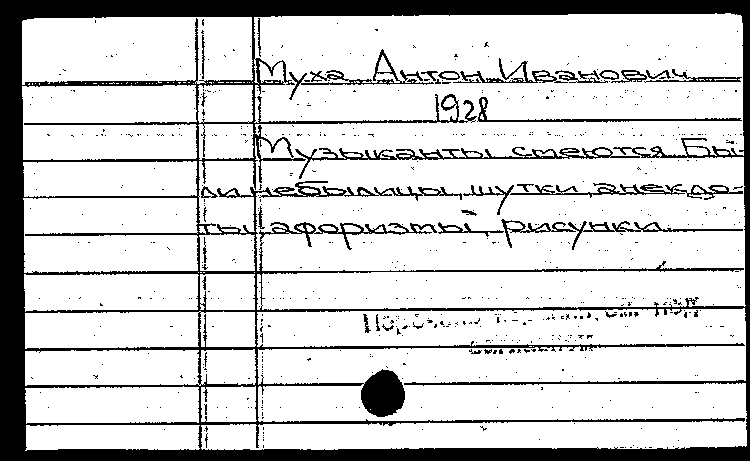 Муха Антон Иванович
1928
Музыканты смеются Бы-
ли небылицы, шутки, анекдо-
ты, афоризмы, рисунки.
под